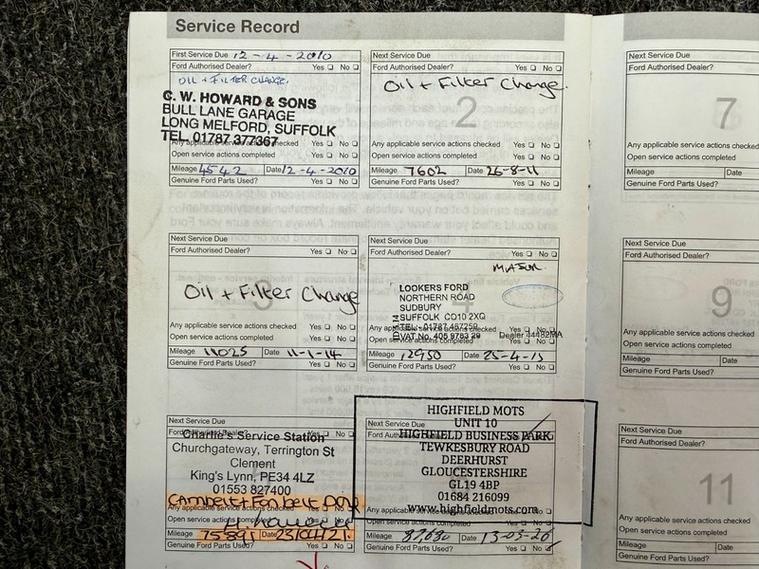 Service Record
First Service Due 12-4-2010
Ford Authorised Dealer? Yes No
OIL + FILTER CHANGE.
C. W. HOWARD & SONS
BULL LANE GARAGE
LONG MELFORD, SUFFOLK
TEL. 01787 377367
Any applicable service actions checked Yes No
Open service actions completed Yes No
Mileage 4542 Date 12-4-2010
Genuine Ford Parts Used? Yes No
Next Service Due
Ford Authorised Dealer? Yes No
Oil + Filter Change.
2
Any applicable service actions checked Yes No
Open service actions completed Yes No
Mileage 7602 Date 26-8-11
Genuine Ford Parts Used? Yes No
Next Service Due
Ford Authorised Dealer?
7
Any applicable service actions checked
Open service actions completed
Mileage Date
Genuine Ford Parts Used?
Next Service Due
Ford Authorised Dealer? Yes No
Oil + Filter Change
Any applicable service actions checked Yes No
Open service actions completed Yes No
Mileage 11025 Date 11-1-14
Genuine Ford Parts Used? Yes No
Next Service Due
Ford Authorised Dealer? Yes No
LOOKERS FORD
NORTHERN ROAD
SUDBURY
SUFFOLK CO10 2XQ
TEL: 01787
VAT No:
Open service actions completed Yes No
Mileage 12950 Date
Genuine Ford Parts Used? Yes No
Next Service Due
Ford Authorised Dealer?
9
Any applicable service actions checked
Open service actions completed
Mileage Date
Genuine Ford Parts Used?
Next Service Due
Charlie's Service Station
Churchgateway, Terrington St
Clement
King's Lynn, PE34 4LZ
01553 827400
Cambelt + Fanbelt
Any applicable service actions checked
Open service actions completed
Mileage 75891 Date
Genuine Ford Parts Used? Yes No
HIGHFIELD MOTS
UNIT 10
HIGHFIELD BUSINESS PARK
TEWKESBURY ROAD
DEERHURST
GLOUCESTERSHIRE
GL19 4BP
01684 216099
www.highfieldmots.com
Open service actions completed Yes No
Mileage Date
Genuine Ford Parts Used? Yes No
Next Service Due
Ford Authorised Dealer?
11
Any applicable service actions checked
Open service actions completed
Mileage Date
Genuine Ford Parts Used?